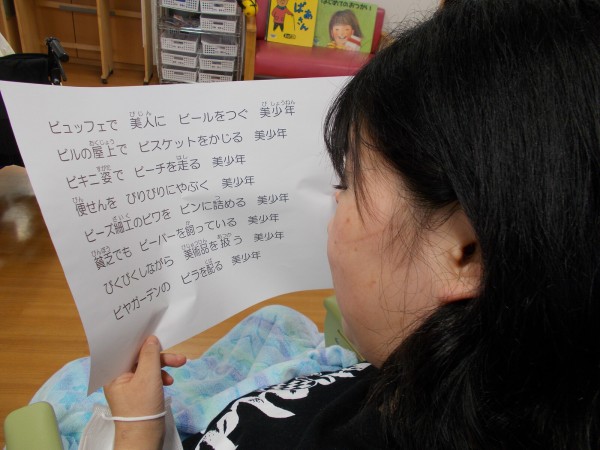 ばあ
はじめてのおつかい
ビュッフェで　美人に　ビールをつぐ　美少年
ビルの屋上で　ビスケットをかじる　美少年
ビキニ姿で　ビーチを走る　美少年
便せんを　びりびりにやぶく　美少年
ビーズ細工のビワを　ビンに詰める　美少年
貧乏でも　ビーバーを飼っている　美少年
びくびくしながら　美術品を扱う　美少年
ビヤガーデンの　ビラを配る　美少年